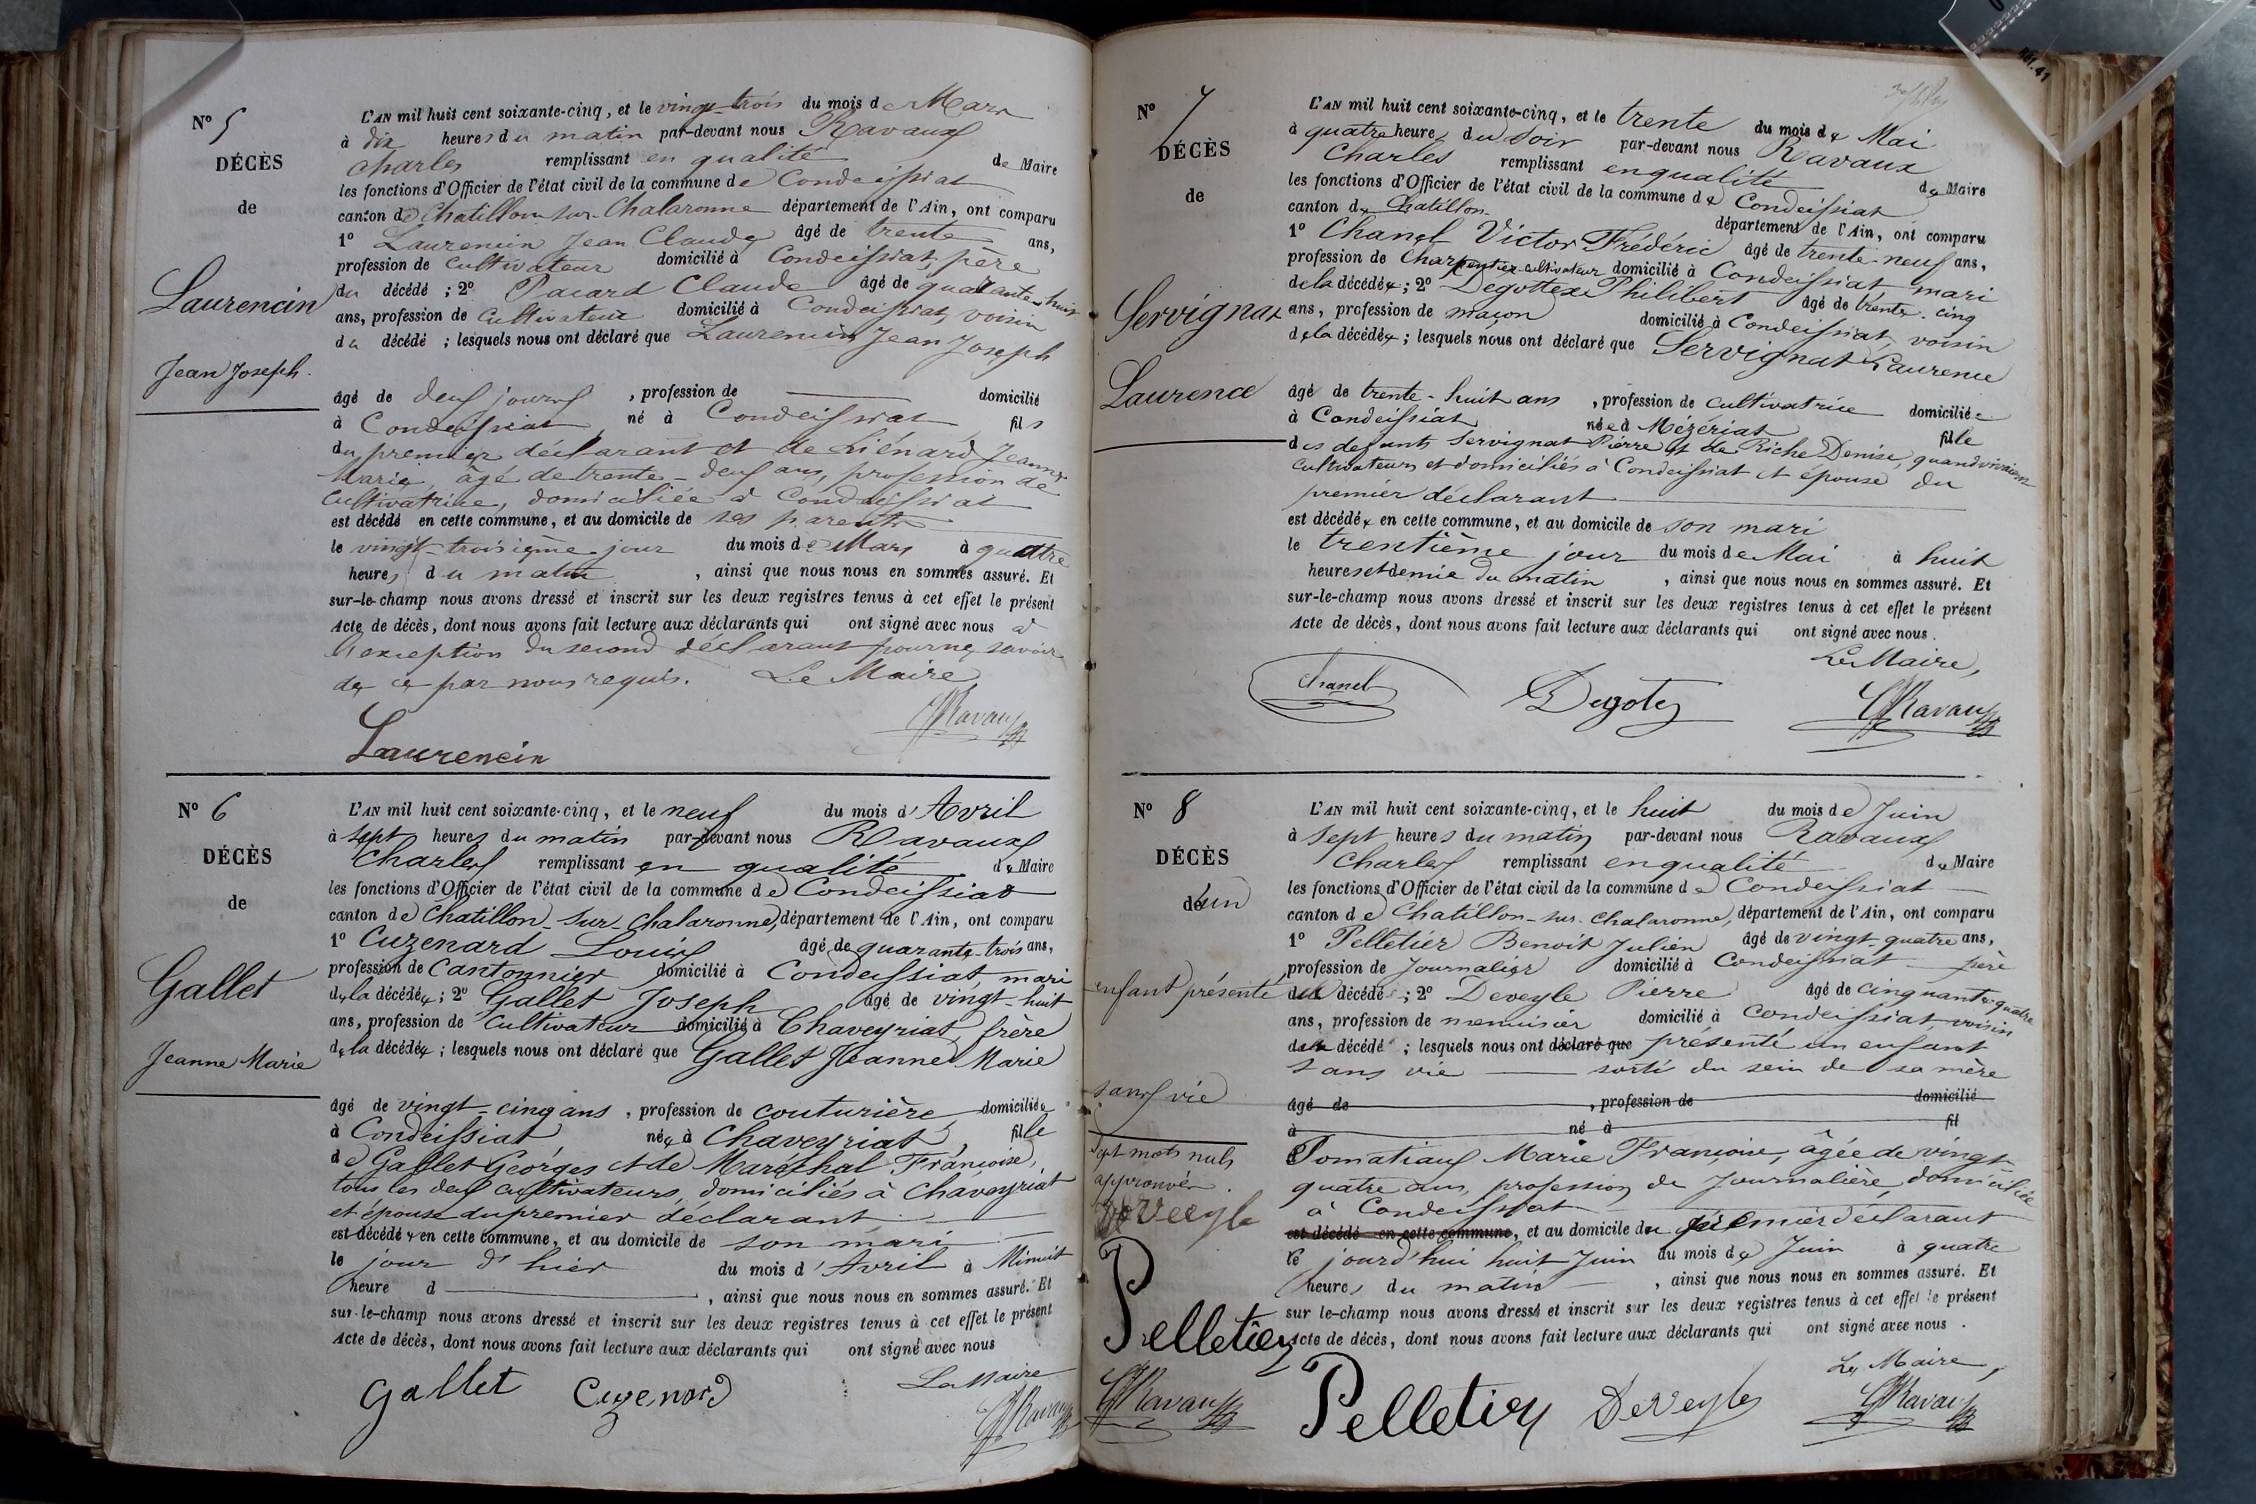 N° 5
DÉCÈS
de
Laurencin
Jean Joseph.
L'AN mil huit cent soixante-cinq, et le vingt-trois du mois de Mars
à dix heures du matin par-devant nous Ravaux
Charles remplissant en qualité de Maire
les fonctions d'Officier de l'état civil de la commune de Condeissiat
canton de Chatillon-sur-Chalaronne département de l'Ain, ont comparu
1° Laurencin Jean Claude âgé de trente ans,
profession de cultivateur domicilié à Condeissiat, père
du décédé ; 2° Pacard Claude âgé de quarante-huit
ans, profession de cultivateur domicilié à Condeissiat, voisin
du décédé ; lesquels nous ont déclaré que Laurencin Jean Joseph
âgé de deux jours , profession de domicilié
à Condeissiat né à Condeissiat fils
du premier déclarant et de Liénard Jeanne
Marie, âgé de trente-deux ans, profession de
cultivatrice, domiciliée à Condeissiat
est décédé en cette commune, et au domicile de ses parents
le vingt-troisième jour du mois de Mars à quatre
heures du matin , ainsi que nous nous en sommes assuré. Et
sur-le-champ nous avons dressé et inscrit sur les deux registres tenus à cet effet le présent
Acte de décès, dont nous avons fait lecture aux déclarants qui ont signé avec nous à
l'exception du second déclarant pour ne savoir
de ce par nous requis. Le Maire
Ravaux
Laurencin
N° 6
DÉCÈS
de
Gallet
Jeanne Marie
L'AN mil huit cent soixante-cinq, et le neuf du mois d'Avril
à sept heures du matin par-devant nous Ravaux
Charles remplissant en qualité de Maire
les fonctions d'Officier de l'état civil de la commune de Condeissiat
canton de Chatillon-sur-Chalaronne, département de l'Ain, ont comparu
1° Cuzenard Louis âgé de quarante-trois ans,
profession de Cantonnier domicilié à Condeissiat, mari
de la décédée ; 2° Gallet Joseph âgé de vingt-huit
ans, profession de cultivateur domicilié à Chaveyriat, frère
de la décédée ; lesquels nous ont déclaré que Gallet Jeanne Marie
âgé de vingt-cinq ans , profession de couturière domiciliée
à Condeissiat née à Chaveyriat, fille
de Gallet Géorges et de Maréchal Françoise,
tous les deux cultivateurs, domiciliés à Chaveyriat
et épouse du premier déclarant
est décédée en cette commune, et au domicile de son mari
le jour d'hier du mois d'Avril à Minuit
heure d , ainsi que nous nous en sommes assuré. Et
sur-le-champ nous avons dressé et inscrit sur les deux registres tenus à cet effet le présent
Acte de décès, dont nous avons fait lecture aux déclarants qui ont signé avec nous
Le Maire
Gallet Cuzenard Ravaux
N° 7
DÉCÈS
de
Servignat
Laurence
L'AN mil huit cent soixante-cinq, et le trente du mois de Mai
à quatre heures du soir par-devant nous Ravaux
Charles remplissant en qualité de Maire
les fonctions d'Officier de l'état civil de la commune de Condeissiat
canton de Chatillon département de l'Ain, ont comparu
1° Chanel Victor Frédéric âgé de trente-neuf ans,
profession de Charpentier-cultivateur domicilié à Condeissiat mari
de la décédée ; 2° Degottex Philibert âgé de trente-cinq
ans, profession de maçon domicilié à Condeissiat, voisin
de la décédée ; lesquels nous ont déclaré que Servignat Laurence
âgé de trente-huit ans , profession de cultivatrice domiciliée
à Condeissiat née à Mézériat fille
des defunts Servignat Pierre et de Riche Denise, quand vivaient
cultivateurs et domiciliés à Condeissiat et épouse du
premier déclarant
est décédée en cette commune, et au domicile de son mari
le trentième jour du mois de Mai à huit
heures et demie du matin , ainsi que nous nous en sommes assuré. Et
sur-le-champ nous avons dressé et inscrit sur les deux registres tenus à cet effet le présent
Acte de décès, dont nous avons fait lecture aux déclarants qui ont signé avec nous.
Le Maire,
Chanel Degotex Ravaux
N° 8
DÉCÈS
de un
enfant présenté
sans vie
Sept mots nuls
approuvés.
DeVeyle
Pelletier
Ravaux
L'AN mil huit cent soixante-cinq, et le huit du mois de Juin
à sept heures du matin par-devant nous Ravaux
Charles remplissant en qualité de Maire
les fonctions d'Officier de l'état civil de la commune de Condeissiat
canton de Chatillon-sur-Chalaronne, département de l'Ain, ont comparu
1° Pelletier Benoit Julien âgé de vingt-quatre ans,
profession de Journalier domicilié à Condeissiat père
du décédé ; 2° Deveyle Pierre âgé de cinquante-quatre
ans, profession de menuisier domicilié à Condeissiat, voisin
du décédé ; lesquels nous ont déclaré que présenté un enfant
sans vie sorti du sein de sa mère
âgé de , profession de domicilié
à né à fil
Tomatiaux Marie Françoise, âgée de vingt-
quatre ans, profession de Journalière, domiciliée
à Condeissiat
est décédé en cette commune, et au domicile du premier déclarant
le jourd'hui huit Juin du mois de Juin à quatre
heures du matin , ainsi que nous nous en sommes assuré. Et
sur le-champ nous avons dressé et inscrit sur les deux registres tenus à cet effet le présent
Acte de décès, dont nous avons fait lecture aux déclarants qui ont signé avec nous.
Le Maire,
Pelletier DeVeyle Ravaux
Réf. 41